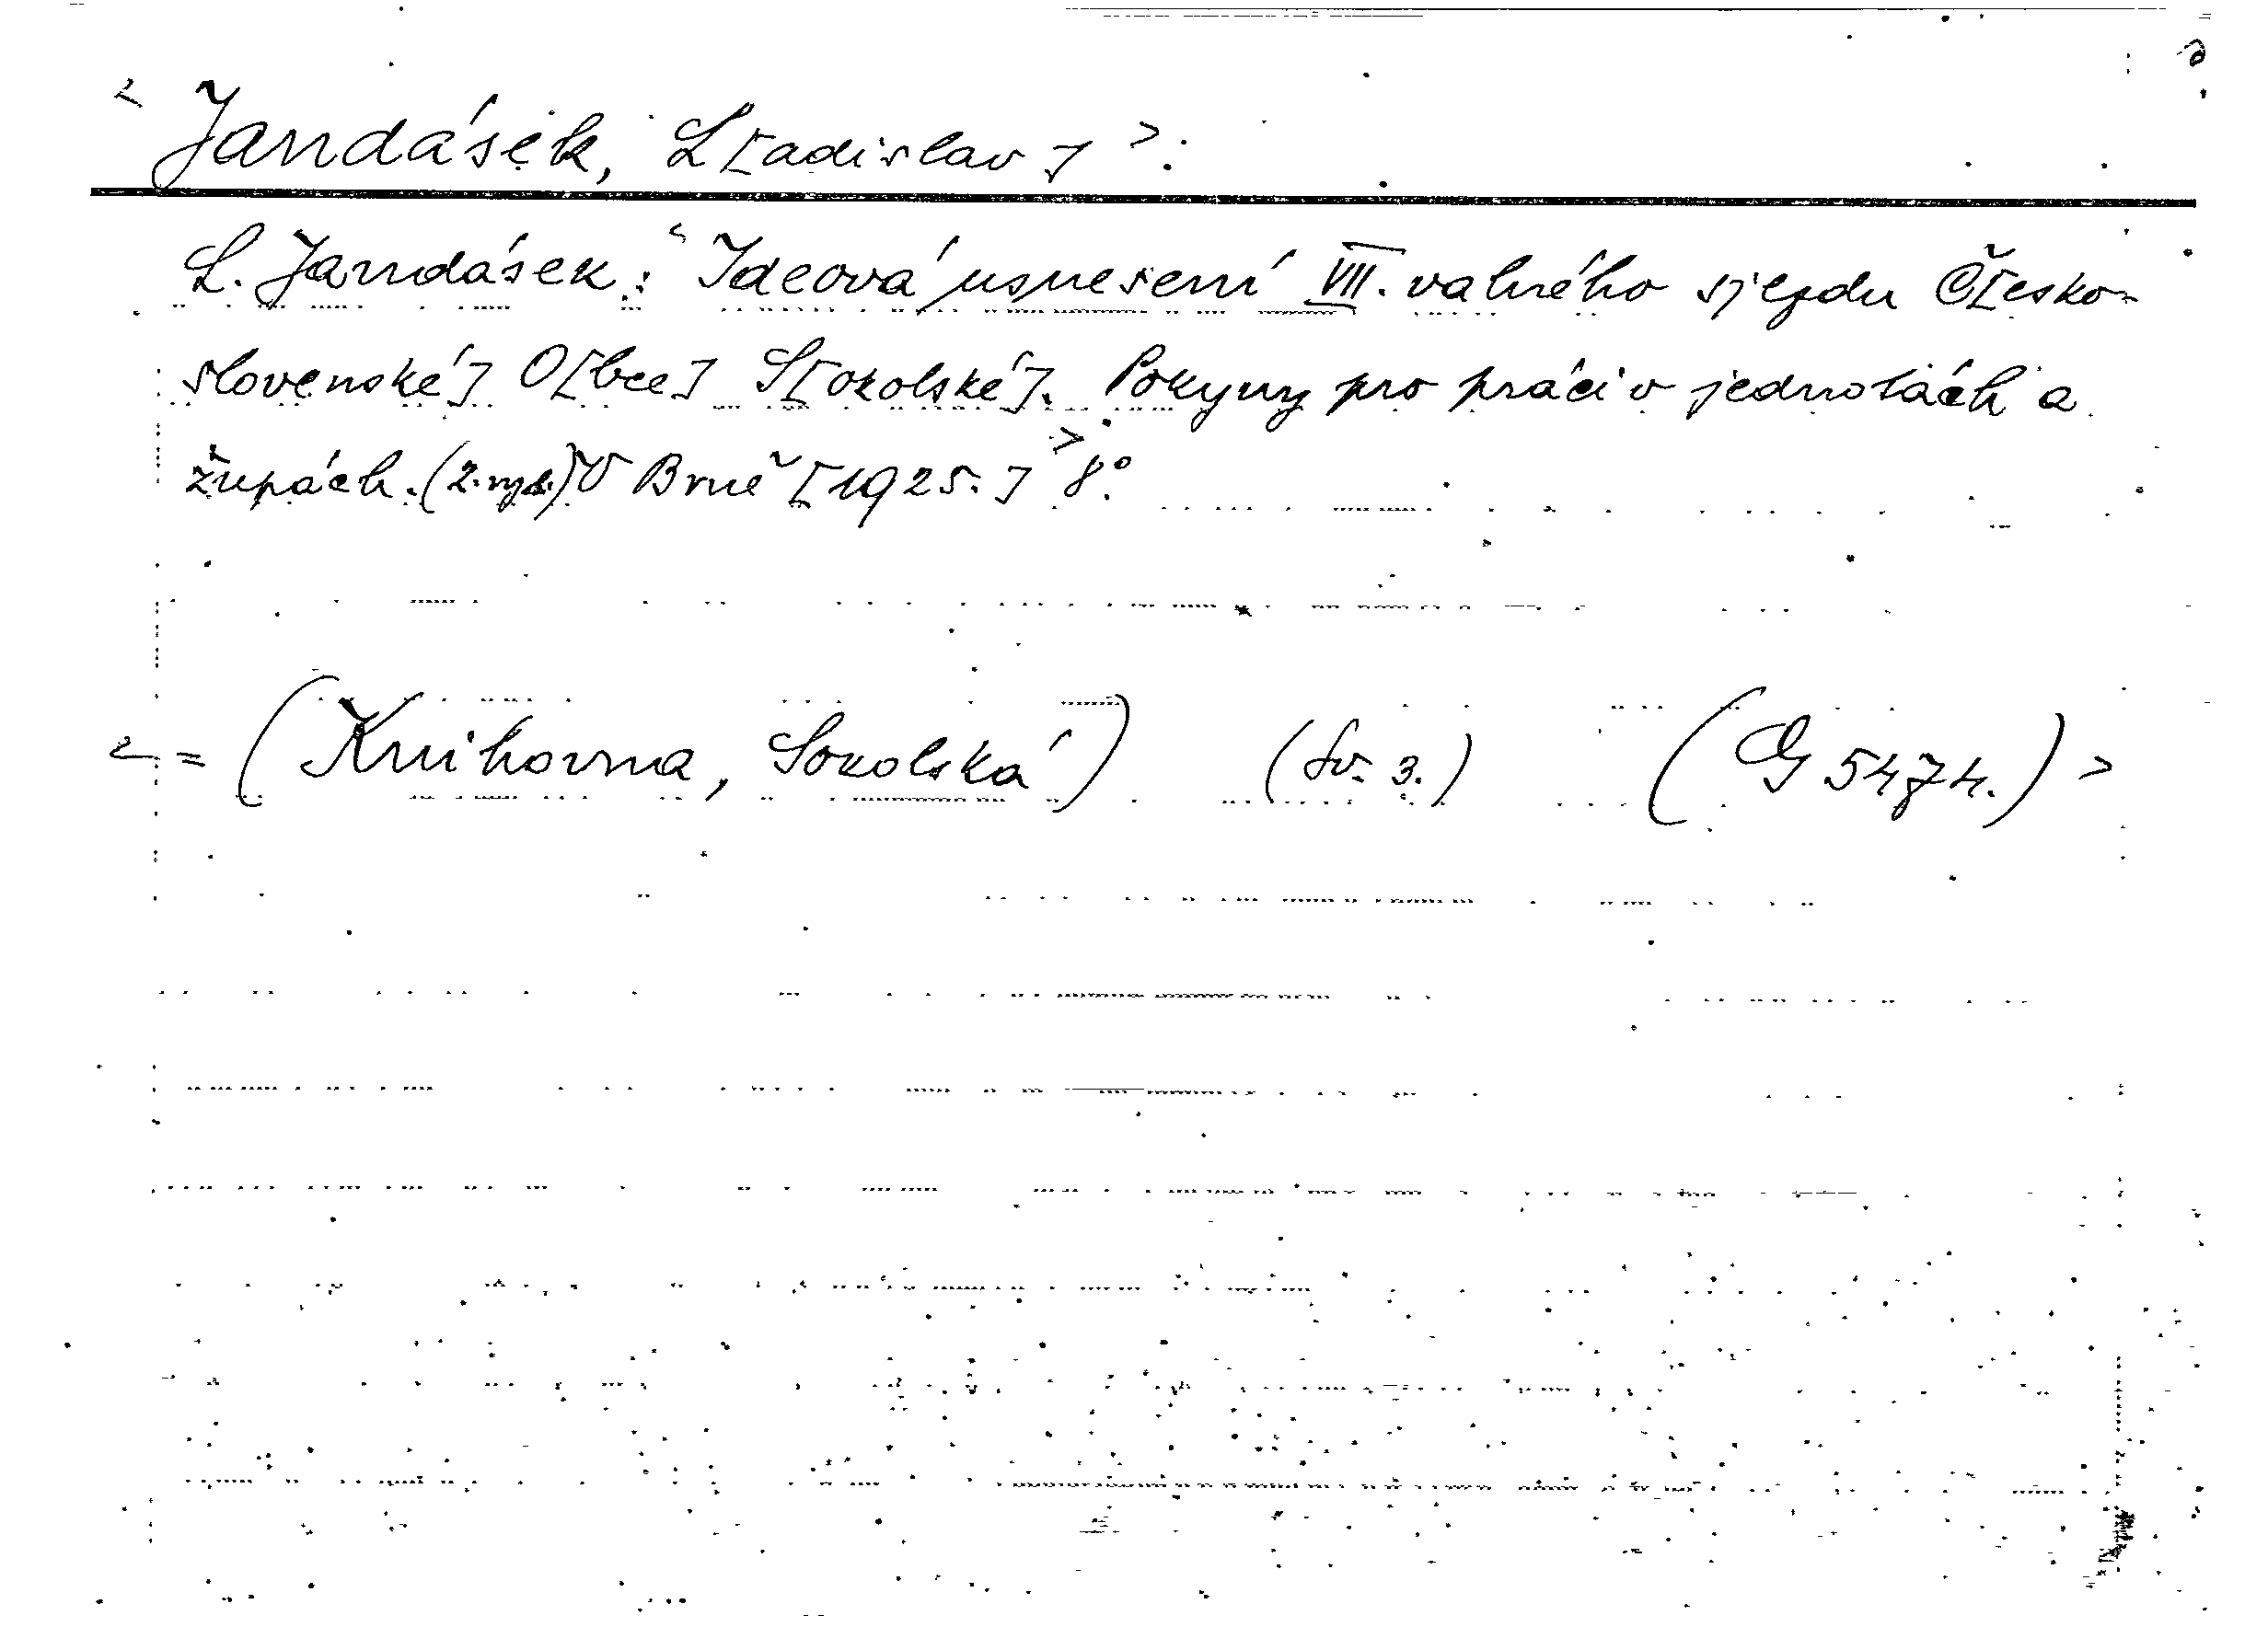 < Jandásek, L[adislav] >:
L. Jandásek: < Ideová usnesení VII. valného sjezdu Č[esko-
slovenské] O[bce] S[okolské]. Pokyny pro práci v jednotách a
župách. (2. vyd.) V Brně [1925.] > 8°.
< = (Knihovna, Sokolská) (Sv. 3.) (G 5474.) >